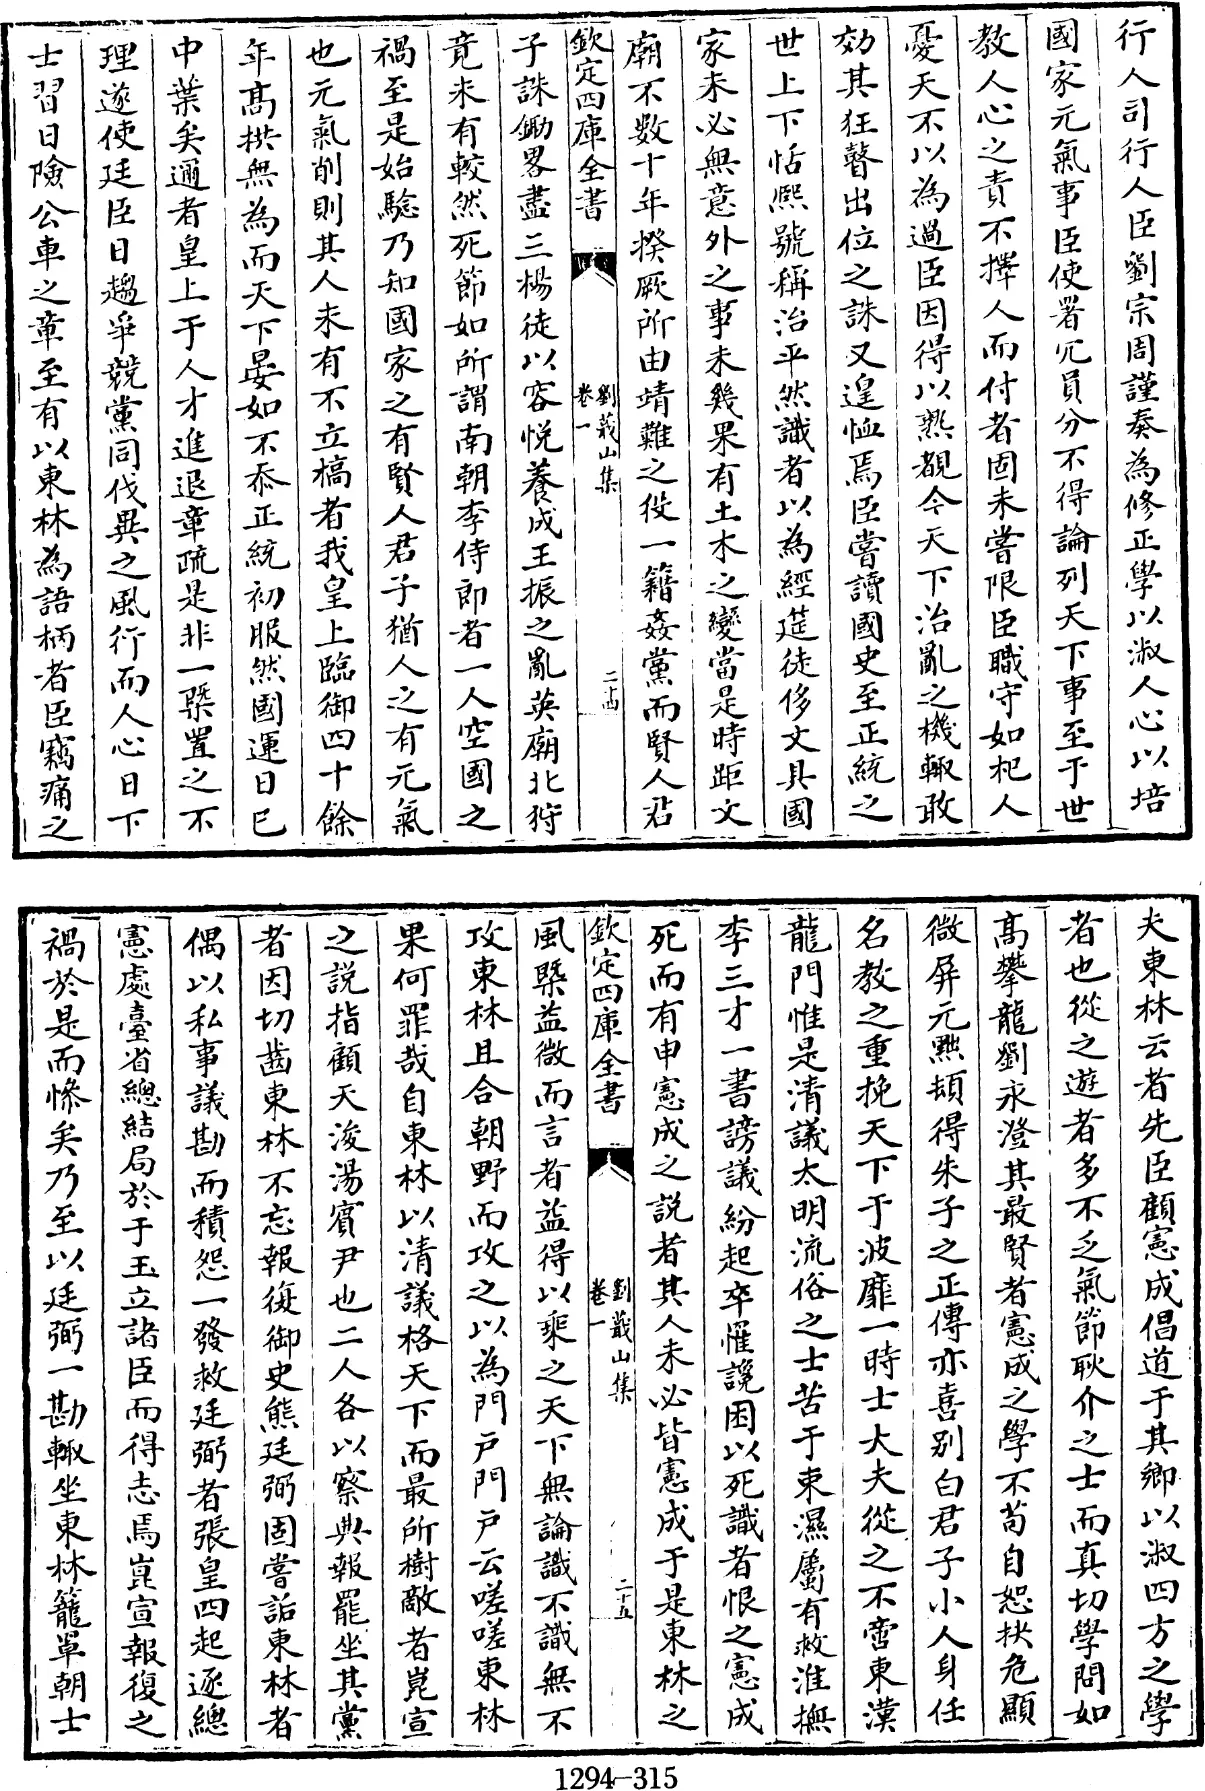 行人司行人臣劉宗周謹奏為修正學以淑人心以培
國家元氣事臣使署冗員分不得論列天下事至于世
教人心之責不擇人而付者固未嘗限臣職守如杞人
憂天不以為過臣因得以熟覩今天下治亂之機輙敢
効其狂瞽出位之誅又遑恤焉臣嘗讀國史至正統之
世上下恬熈號稱治平然識者以為經筵徒侈文具國
家未必無意外之事未幾果有土木之變當是時距文
廟不數十年揆厥所由靖難之役一籍姦黨而賢人君
欽定四庫全書
劉蕺山集
卷一
二十四
子誅鋤畧盡三楊徒以容悅養成王振之亂英廟北狩
竟未有較然死節如所謂南朝李侍郎者一人空國之
禍至是始驗乃知國家之有賢人君子猶人之有元氣
也元氣削則其人未有不立槁者我皇上臨御四十餘
年高拱無為而天下晏如不忝正統初服然國運日已
中葉矣邇者皇上于人才進退章疏是非一槩置之不
理遂使廷臣日趨爭競黨同伐異之風行而人心日下
士習日險公車之章至有以東林為語柄者臣竊痛之
夫東林云者先臣顧憲成倡道于其鄉以淑四方之學
者也從之遊者多不乏氣節耿介之士而真切學問如
高攀龍劉永澄其最賢者憲成之學不苟自恕抉危顯
微屏元黜頓得朱子之正傳亦喜别白君子小人身任
名教之重挽天下于波靡一時士大夫從之不啻東漢
龍門惟是清議太明流俗之士苦于束濕屬有救淮撫
李三才一書謗議紛起卒罹讒困以死識者恨之憲成
死而有申憲成之説者其人未必皆憲成于是東林之
欽定四庫全書
劉蕺山集
卷一
二十五
風槩益微而言者益得以乘之天下無論識不識無不
攻東林且合朝野而攻之以為門戸門戸云嗟嗟東林
果何罪哉自東林以清議格天下而最所樹敵者崑宣
之説指顧天浚湯賔尹也二人各以察典報罷坐其黨
者因切齒東林不忘報復御史熊廷弼固嘗詬東林者
偶以私事議勘而積怨一發救廷弼者張皇四起逐總
憲處臺省總結局於于玉立諸臣而得志焉崑宣報復之
禍於是而慘矣乃至以廷弼一勘輙坐東林籠單朝士
1294-315